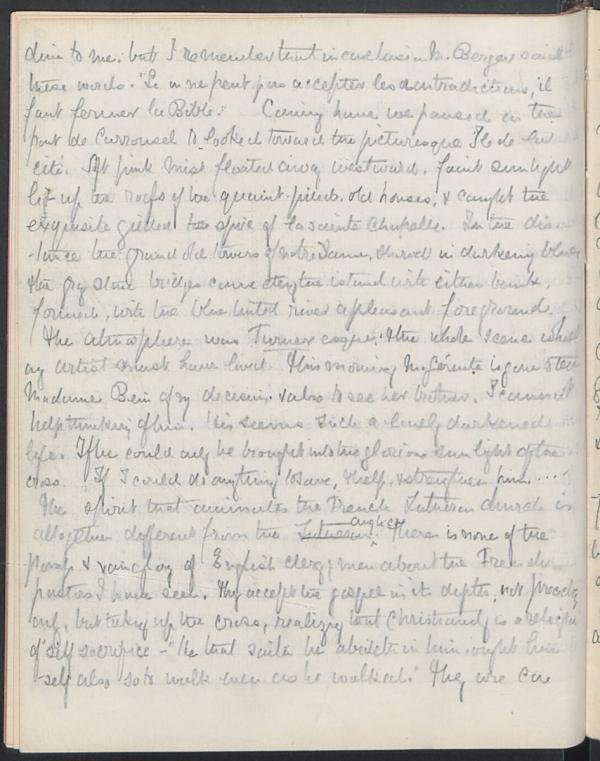 to me; but I remember that in conclusion M. Berger said
these words. "Si on ne peut pas accepter les contradictions, il
faut fermer la Bible." Coming home we paused on the
pont de Carrousel & looked toward the picturesque Ile de la
cité. Soft pink mist floated away westward. faint sunlight
lit up the roofs of the quaint old houses, & caught the
exquisite gilded spire of la sainte Chapelle. In the dis-
-tance the grand old towers of Notre Dame, in darkening blue
& the gray stone bridges connecting the island with either bank,
formed, with the blue tinted river a pleasant foreground.
The atmosphere was Turneresque; & the whole scene what
an artist must have loved. This morning is gone to tell
Madame Bein of my decision & also to see her brother. I cannot
help thinking of him. His seems such a lonely darkened
life. If he could only be brought into the glorious sunlight of the
cross. If I could do anything to save, & help, & strengthen him ....
The spirit that animates the French Lutheran church is
altogether different from the Anglican. There is none of the
pomp & vainglory of English clergymen about the French
pastors I have seen. They accept the gospel in its depths, not preaching
only, but taking up the cross, realizing that Christianity is a religion
of self sacrifice - "He that saith he abideth in him ought him-
-self also so to walk even as he walked." They are